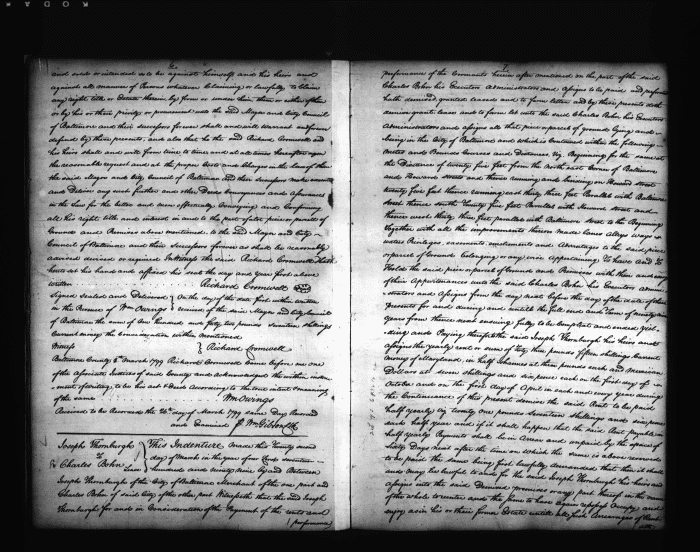 and sold or intended so to be against himself and his heirs and
against all manner of Persons whatsoever Claiming or lawfully to Claim
any right title or Estate therein by from or under him them or either of them
or by his or their privity or procurement unto the said Mayor and City Council
of Baltimore and their Successors forever shall and will warrant and forever
defend by these presents and also that he the said Richard Cromwell and
his heirs shall and will from time to time and at all times hereafter upon
the reasonable request and at the proper Costs and Charges in the law of them
the said Mayor and City Council of Baltimore and their Successors make execute
and Such further and other Deeds Conveyances and Assurances
in the Law for the better and more effectually Conveying and Confirming
all his right title and interest in and to the part of a lot piece or parcels of
Ground and Premises above mentioned to the said Mayor and City
Council of Baltimore and their Successors forever as shall be reasonably
advised devised or required In Witness the said Richard Cromwell hath
hereto set his hand and affixed his seal the day and year first above
written Richard Cromwell
Signed Sealed and Delivered On the day of the date first within written
in the Presence of Wm Owings received of the said Mayor and City Council
of Baltimore the sum of One Hundred and forty two pounds Seventeen Shillings
Current money the Consideration within mentioned
Witness Richard Cromwell
Baltimore County 6th March 1799 Richard Cromwell Came before me one
of the Associate Justices of said County and acknowledged the within instru
ment of writing to be his act & Deed According to the true intent & meaning
of the same Wm Owings
Received to be Recorded the 26th day of March 1799 same Day Record
and Examined Wm Gibson Clk
Joseph Thornburgh This Indenture made this Twenty
to day of March in the year of our Lord Seventeen
Charles Bohn hundred and ninety nine by and Between
Joseph Thornburgh of the City of Baltimore Merchant of the one part and
Charles Bohn of said City of the other part Witnesseth that the said Joseph
Thornburgh for and in Consideration of the Payment of the rents and
performance
7
performance of the Covenants herein after mentioned on the part of the said
Charles Bohn his Executors Administrators and Assigns to be paid and performed
hath demised granted leased and to farm letten and by these presents doth
demise grant lease and to farm let unto the said Charles Bohn his Executors
Administrators and Assigns all that piece or parcel of ground lying and
being in the City of Baltimore and which is contained within the following
metes and Bounds Courses and Distances Viz Beginning for the same at
the Distance of twenty five feet from the north east Corner of Baltimore
and Howard streets and thence running and bounding on Howard street
twenty five feet thence running east thirty three feet Parallel with Baltimore
street thence south Twenty five feet Parallel with Howard street and
thence west thirty three feet parallel with Baltimore street to the Beginning
Together with all the improvements thereon made lanes alleys ways
waters Privileges easements emoluments and Advantages to the said piece
or parcel of Ground belonging or any wise appertaining To have and To
Hold the said piece or parcel of Ground and Premises with them and every
of their Appurtenances unto the said Charles Bohn his Executors Admini
strators and Assigns from the day next before the day of the date of these
presents for and during and untill the full end and Term of ninety nine
years from thence next ensuing fully to be compleat and ended Yiel
ding and Paying therefore the said Joseph Thornburgh his Heirs and
Assigns the yearly rent or sum of forty three pounds fifteen shillings Current
money of Maryland in half Johannes at three pounds each and American
Dollars at seven shillings and six pence each on the first day of
October and on the first day of April in each and every year during
the Continuance of this present demise the said Rent to be paid
half yearly by twenty one pounds Seventeen Shillings and sixpence
each half year and if it shall happen that the said Rent payable
half yearly Payments shall be in Arrear and unpaid by the space of
Sixty Days next after the time on which the same is above reserved
to be paid the same being first lawfully demanded that then it shall
and may be lawful to and for the said Joseph Thornburgh his heirs and
assigns into the said Demised premises or any part thereof in the name
of the whole to reenter and the same to have again repossess Occupy and
enjoy as in his or their former Estate untill all such Arrearages of Rent